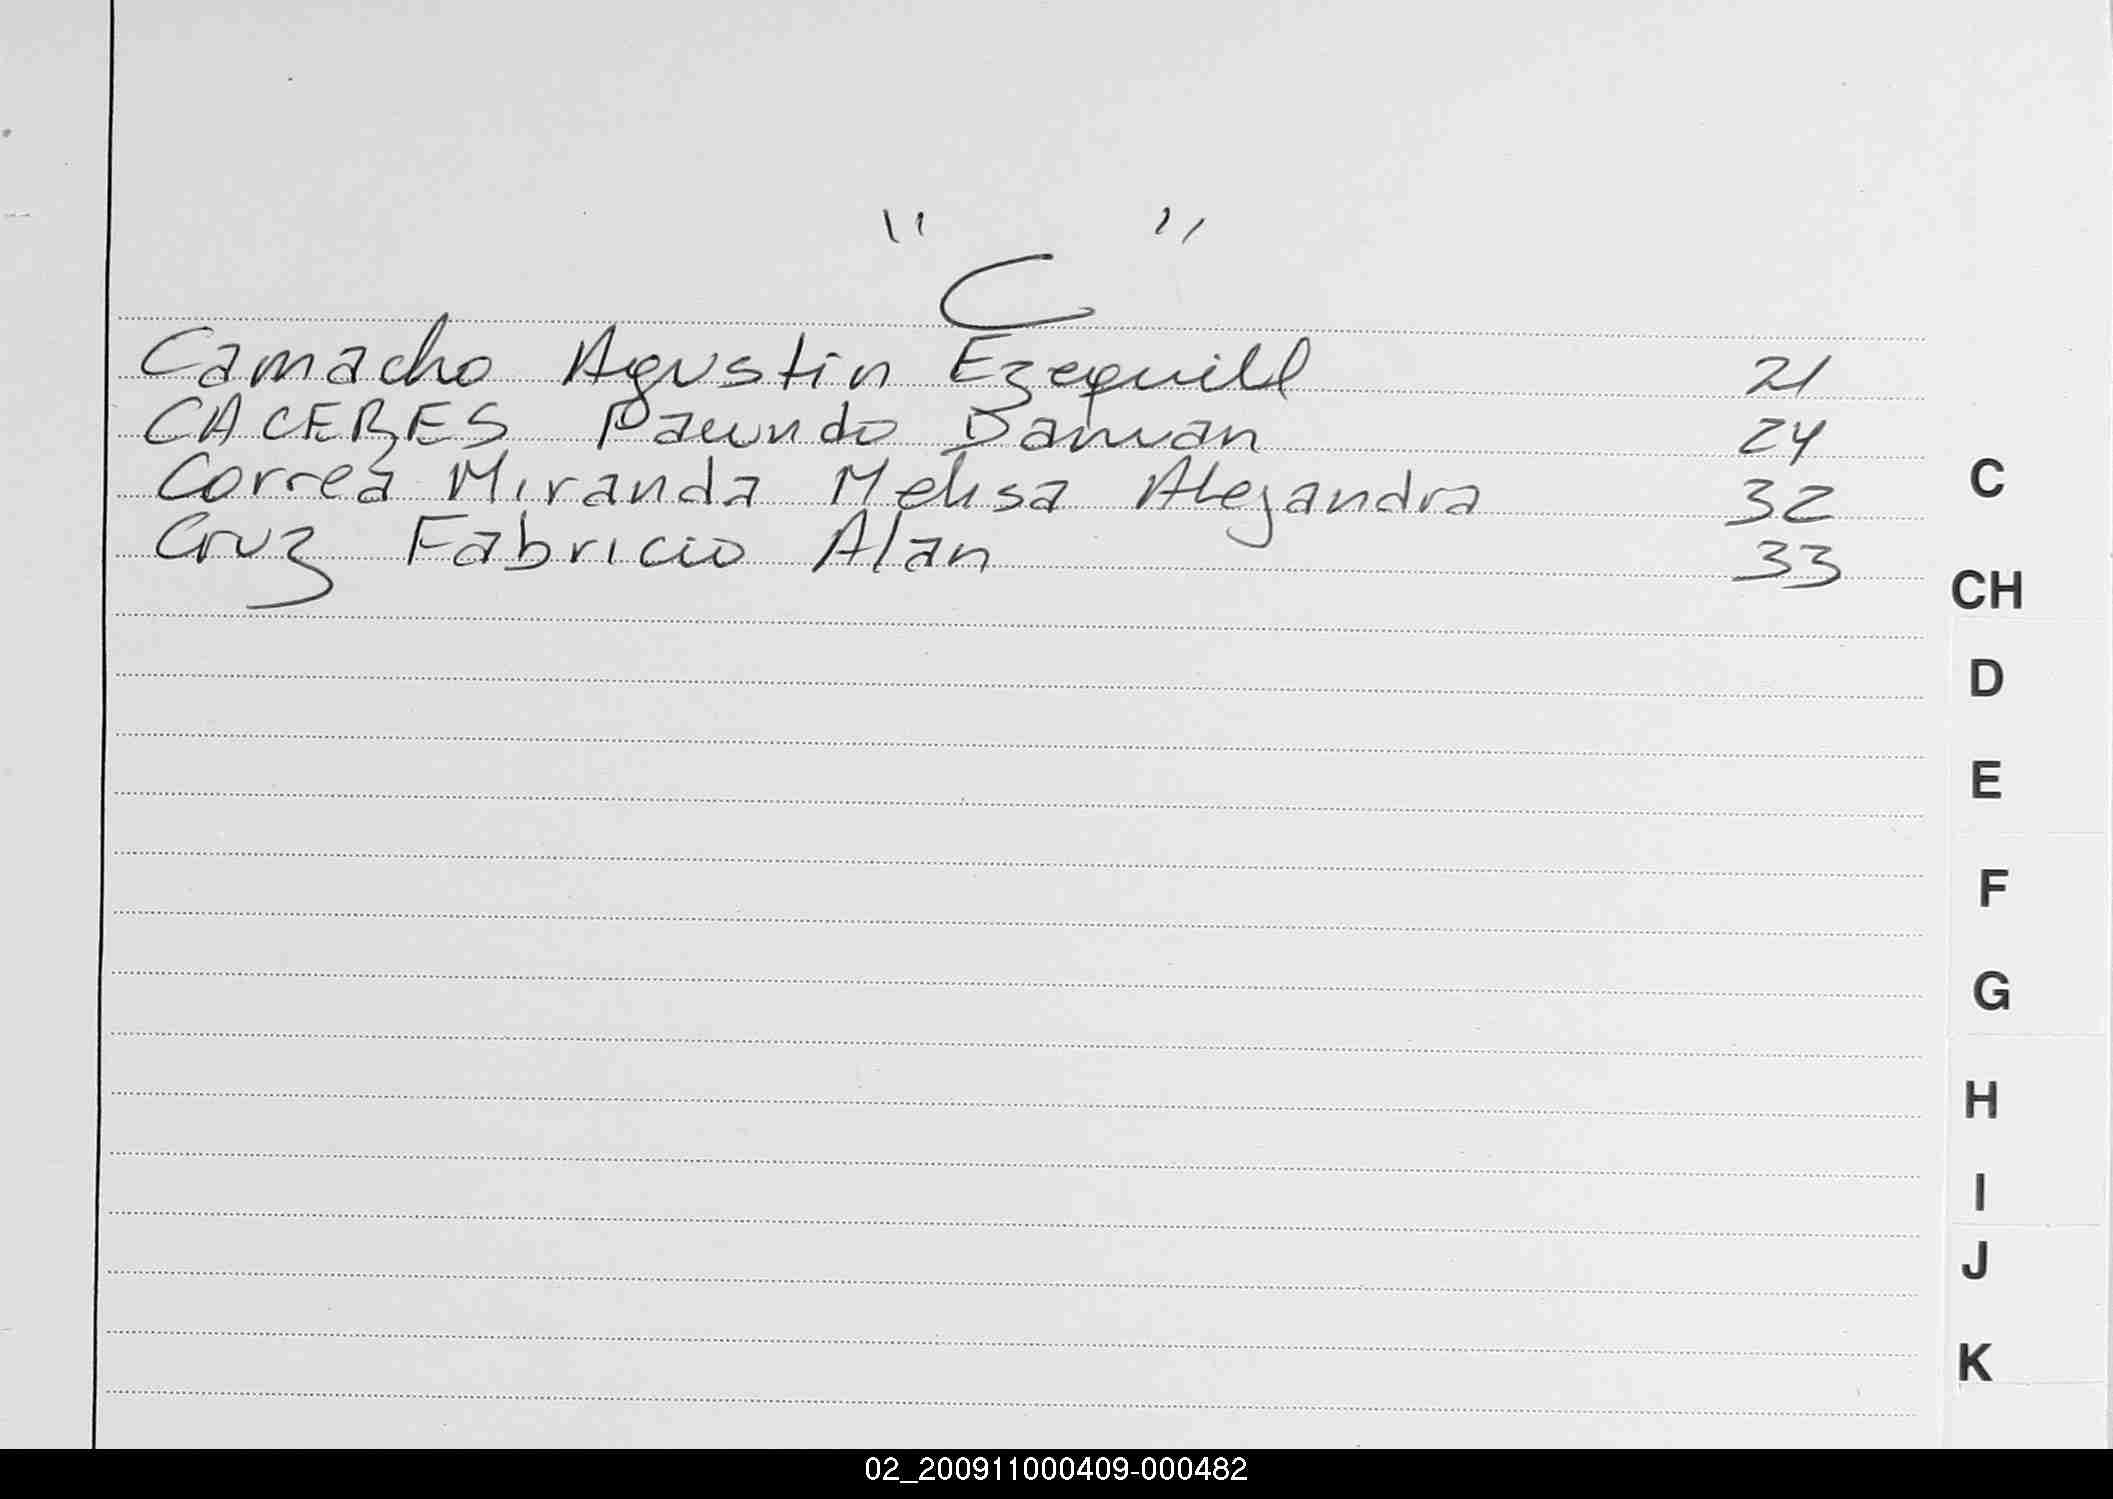 " C "
Camacho Agustin Ezequill 21
CACERES Facundo Damian 24
Correa Miranda Melisa Alejandra 32
Cruz Fabricio Alan 33
C
CH
D
E
F
G
H
I
J
K
02_200911000409-000482